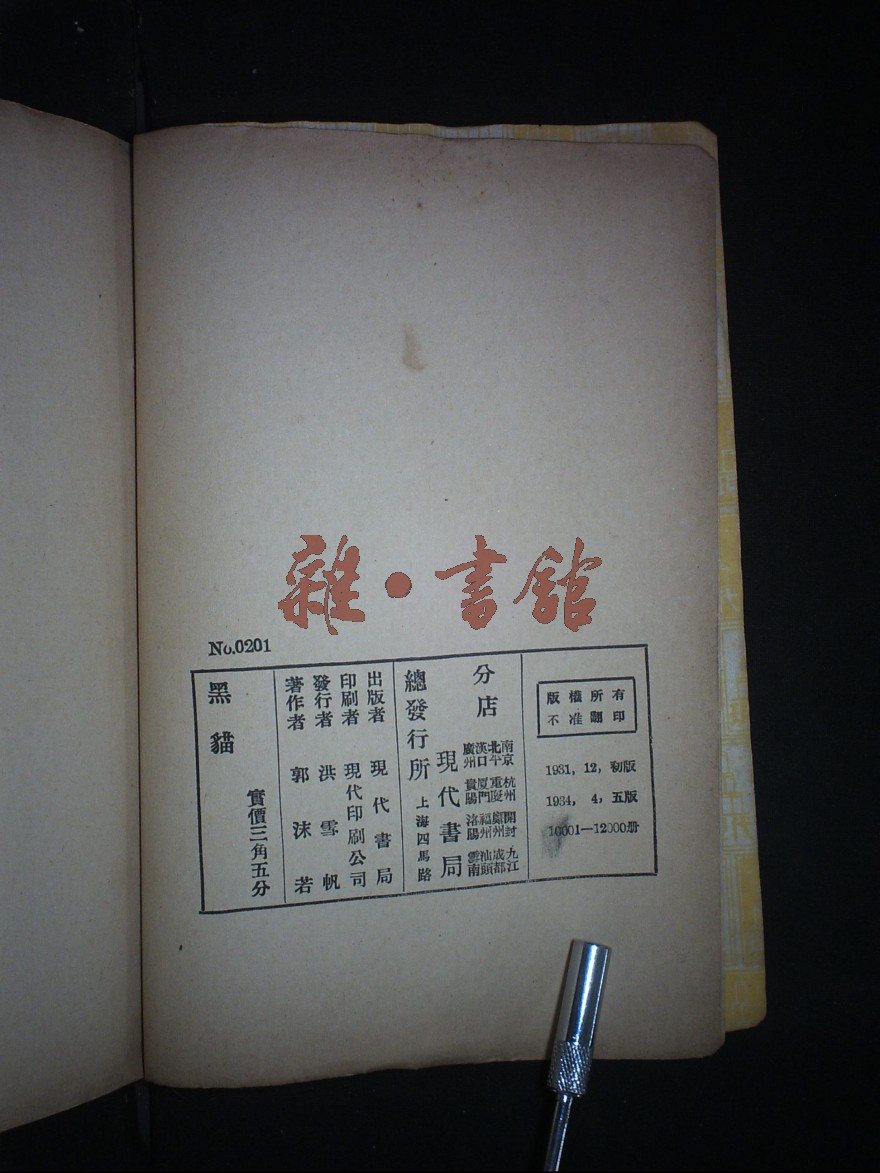 雜·書館
No.0201
版權所有
不准翻印
1931, 12, 初版
1934, 4, 五版
10001—12000册
分店
南京 北平 漢口 廣州
杭州 重慶 廈門 貴陽
開封 鄭州 福州 洛陽
九江 成都 汕頭 雲南
現代書局
總發行所 上海四馬路
出版者 現代書局
印刷者 現代印刷公司
發行者 洪雪帆
著作者 郭沫若
黑貓
實價三角五分